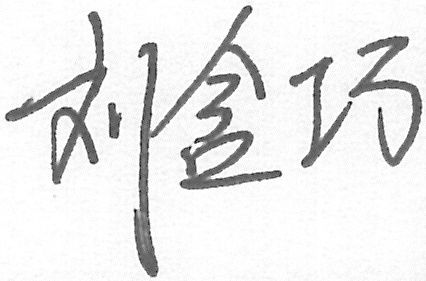 刘金巧